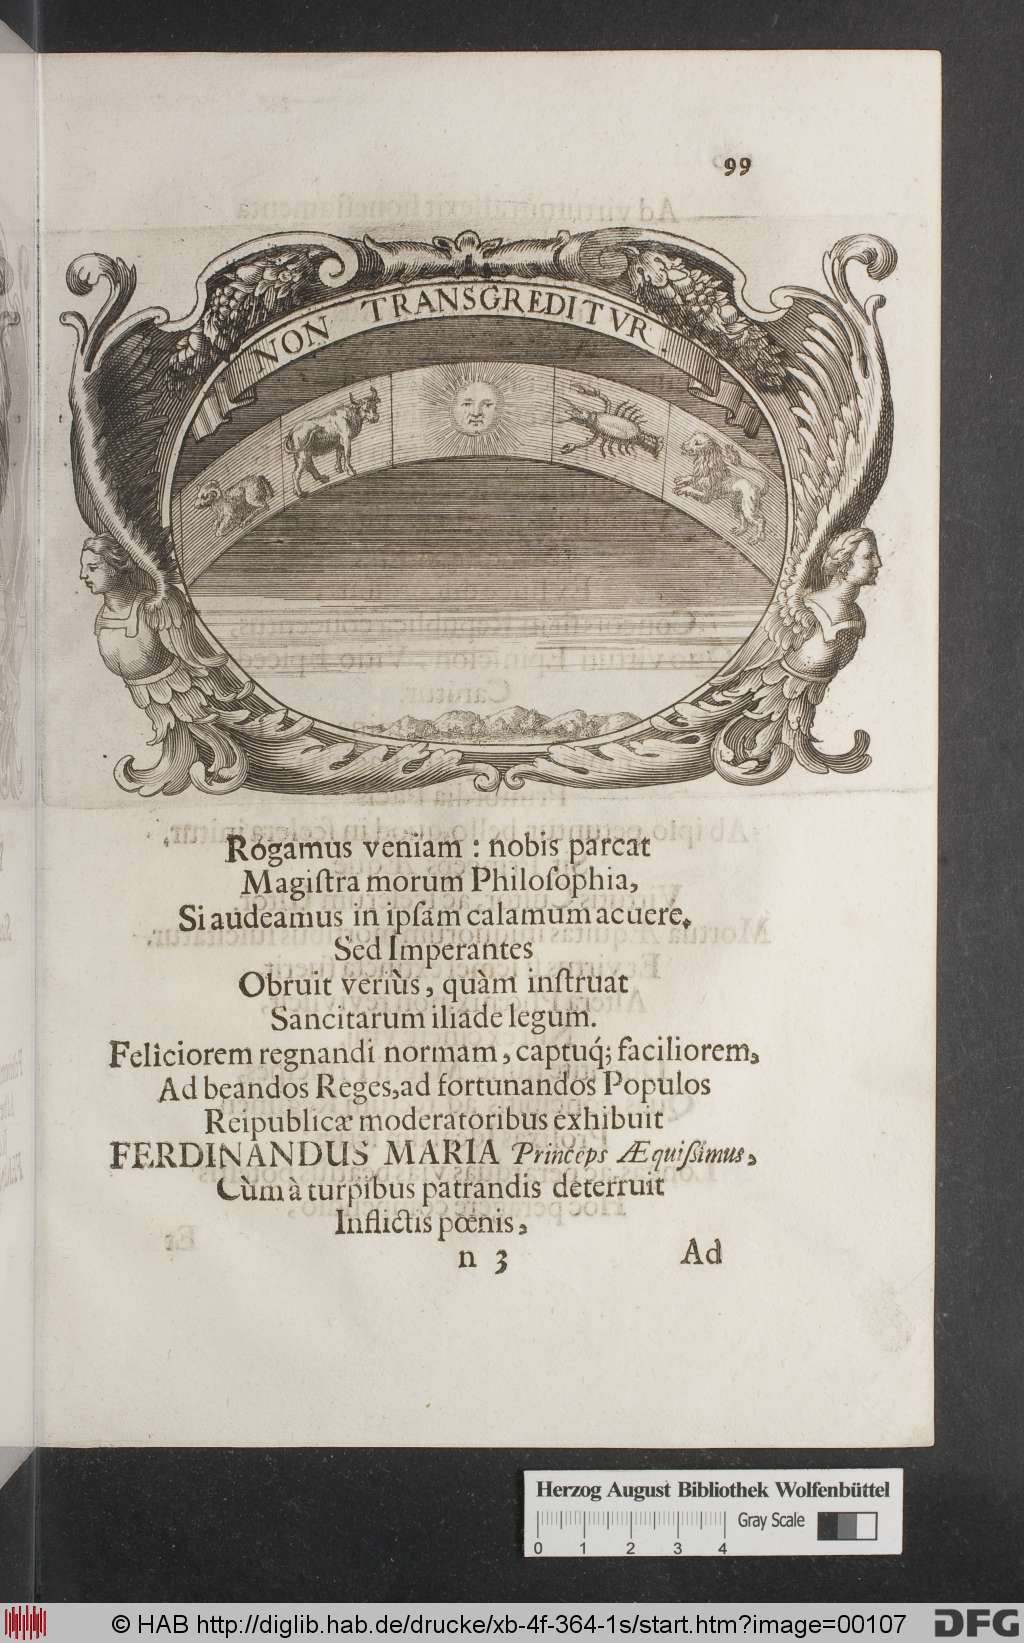 99
NON TRANSGREDITVR.
Rogamus veniam : nobis parcat
Magiſtra morum Philoſophia,
Si audeamus in ipſam calamum acuere.
Sed Imperantes
Obruit veriùs, quàm inſtruat
Sancitarum iliade legum.
Feliciorem regnandi normam, captuq́; faciliorem,
Ad beandos Reges, ad fortunandos Populos
Reipublicæ moderatoribus exhibuit
FERDINANDUS MARIA Princeps Æquiſsimus,
Cùm à turpibus patrandis deterruit
Inflictis pœnis,
n 3 Ad
Herzog August Bibliothek Wolfenbüttel
Gray Scale
0 1 2 3 4
© HAB http://diglib.hab.de/drucke/xb-4f-364-1s/start.htm?image=00107
DFG